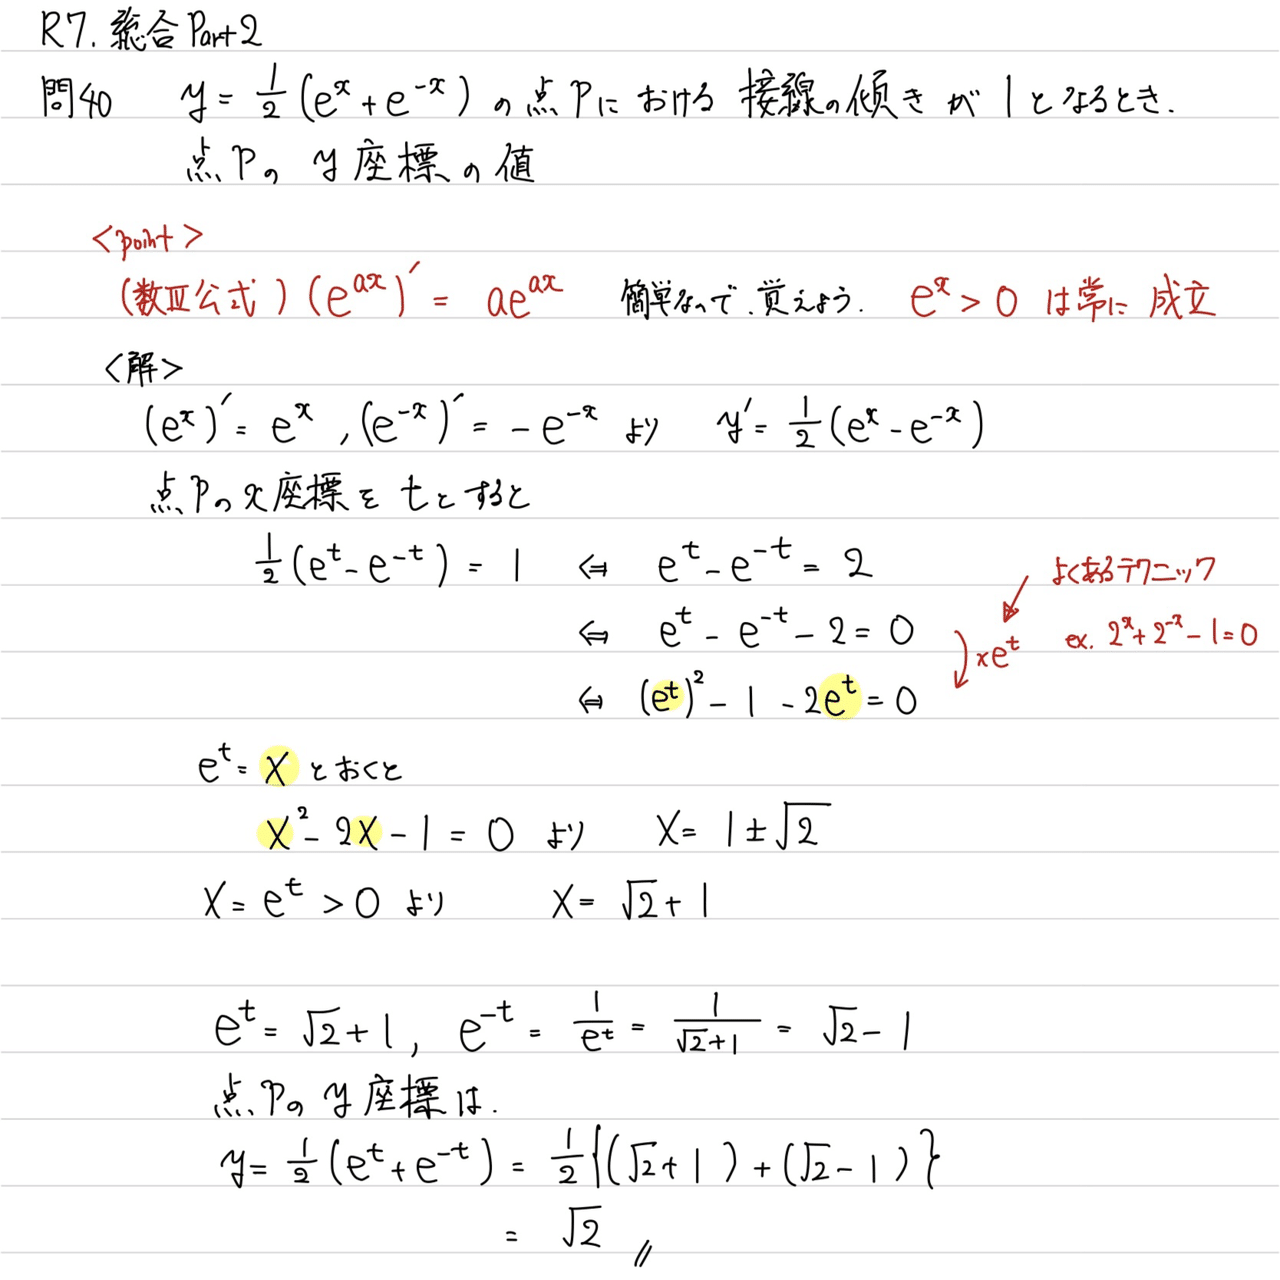 R7. 総合 Part2
問40 y = 1/2 (e^x + e^-x) の 点Pに おける 接線の傾き が 1 と なるとき.
点Pの y座標の値
<point>
(数Ⅲ公式) (e^ax)' = ae^ax 簡単なので、覚えよう. e^x > 0 は常に 成立
<解>
(e^x)' = e^x , (e^-x)' = -e^-x より y' = 1/2 (e^x - e^-x)
点Pの x座標を tとすると
1/2 (e^t - e^-t) = 1 ⇔ e^t - e^-t = 2 よくあるテクニック
⇔ e^t - e^-t - 2 = 0 ×e^t ex. 2^x + 2^-x - 1 = 0
⇔ (e^t)^2 - 1 - 2e^t = 0
e^t = X とおくと
X^2 - 2X - 1 = 0 より X = 1 ± √2
X = e^t > 0 より X = √2 + 1
e^t = √2 + 1 , e^-t = 1/e^t = 1/(√2+1) = √2 - 1
点Pの y座標は.
y = 1/2 (e^t + e^-t) = 1/2 {(√2 + 1) + (√2 - 1)}
= √2 //